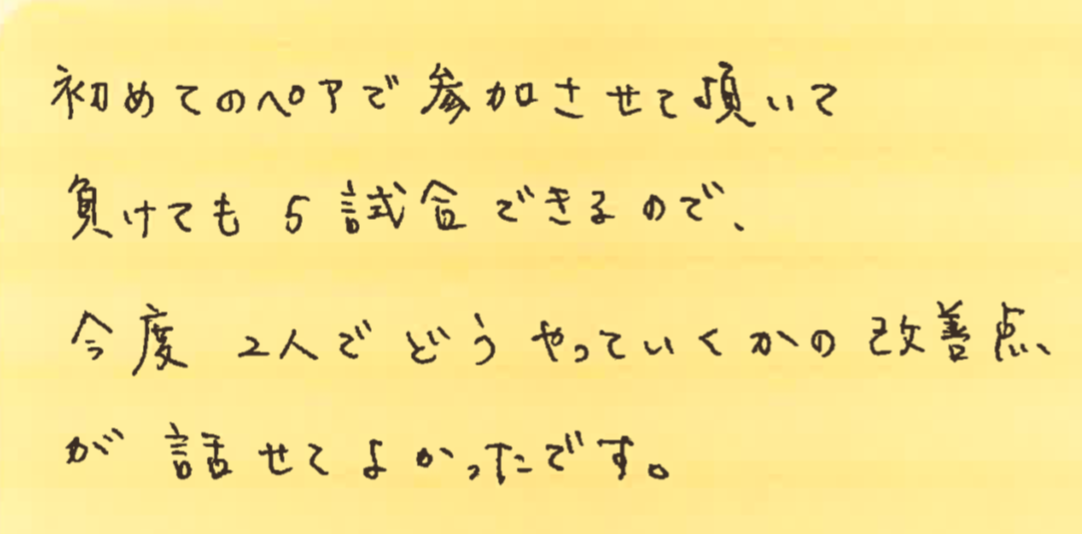 初めてのペアで参加させて頂いて
負けても5試合できるので、
今度2人でどうやっていくかの改善点
が話せてよかったです。